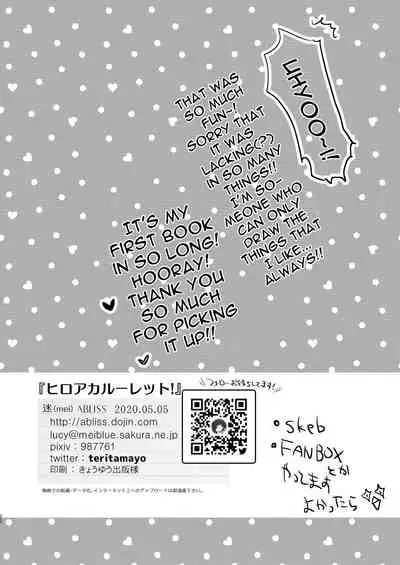 UHYOO~!!
THAT WAS
SO MUCH
FUN~!
SORRY THAT
IT WAS
LACKING(?)
IN SO MANY
THINGS!!
I'M SO-
MEONE WHO
CAN ONLY
DRAW THE
THINGS THAT
I LIKE...
ALWAYS!!
IT'S MY
FIRST BOOK
IN SO LONG!
HOORAY!
THANK YOU
SO MUCH
FOR PICKING
IT UP!!
『ヒロアカルーレット!』
迷(mei) ABLISS 2020.05.05
http://abliss.dojin.com
lucy@meiblue.sakura.ne.jp
pixiv : 987761
twitter : teritamayo
印刷 : きょうゆう出版様
フォローお待ちしてます!
・skeb
・FANBOX
とか
やってます
よかったら